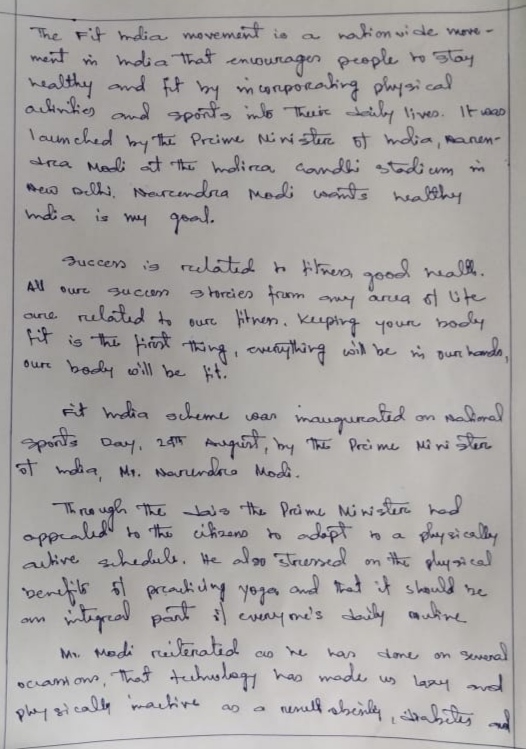 The Fit India movement is a nationwide move-
ment in India that encourages people to stay
healthy and fit by incorporating physical
activities and sports into their daily lives. It was
launched by the Prime Minister of India, Naren-
dra Modi at the Indira Gandhi stadium in
New Delhi. Narendra Modi wants healthy
India is my goal.
Success is related to fitness, good health.
All our success stories from any area of life
are related to our fitness. Keeping your body
fit is the first thing, everything will be in our hands,
our body will be fit.
Fit India scheme was inaugurated on National
Sports Day, 29th August, by the Prime Minister
of India, Mr. Narendra Modi.
Through the dais the Prime Minister had
appealed to the citizens to adopt to a physically
active schedule. He also stressed on the physical
benefits of practicing yoga and that it should be
an integral part of everyone's daily routine
Mr. Modi reiterated as he has done on several
occassions, that technology has made us lazy and
physically inactive as a result obesity, diabetes and